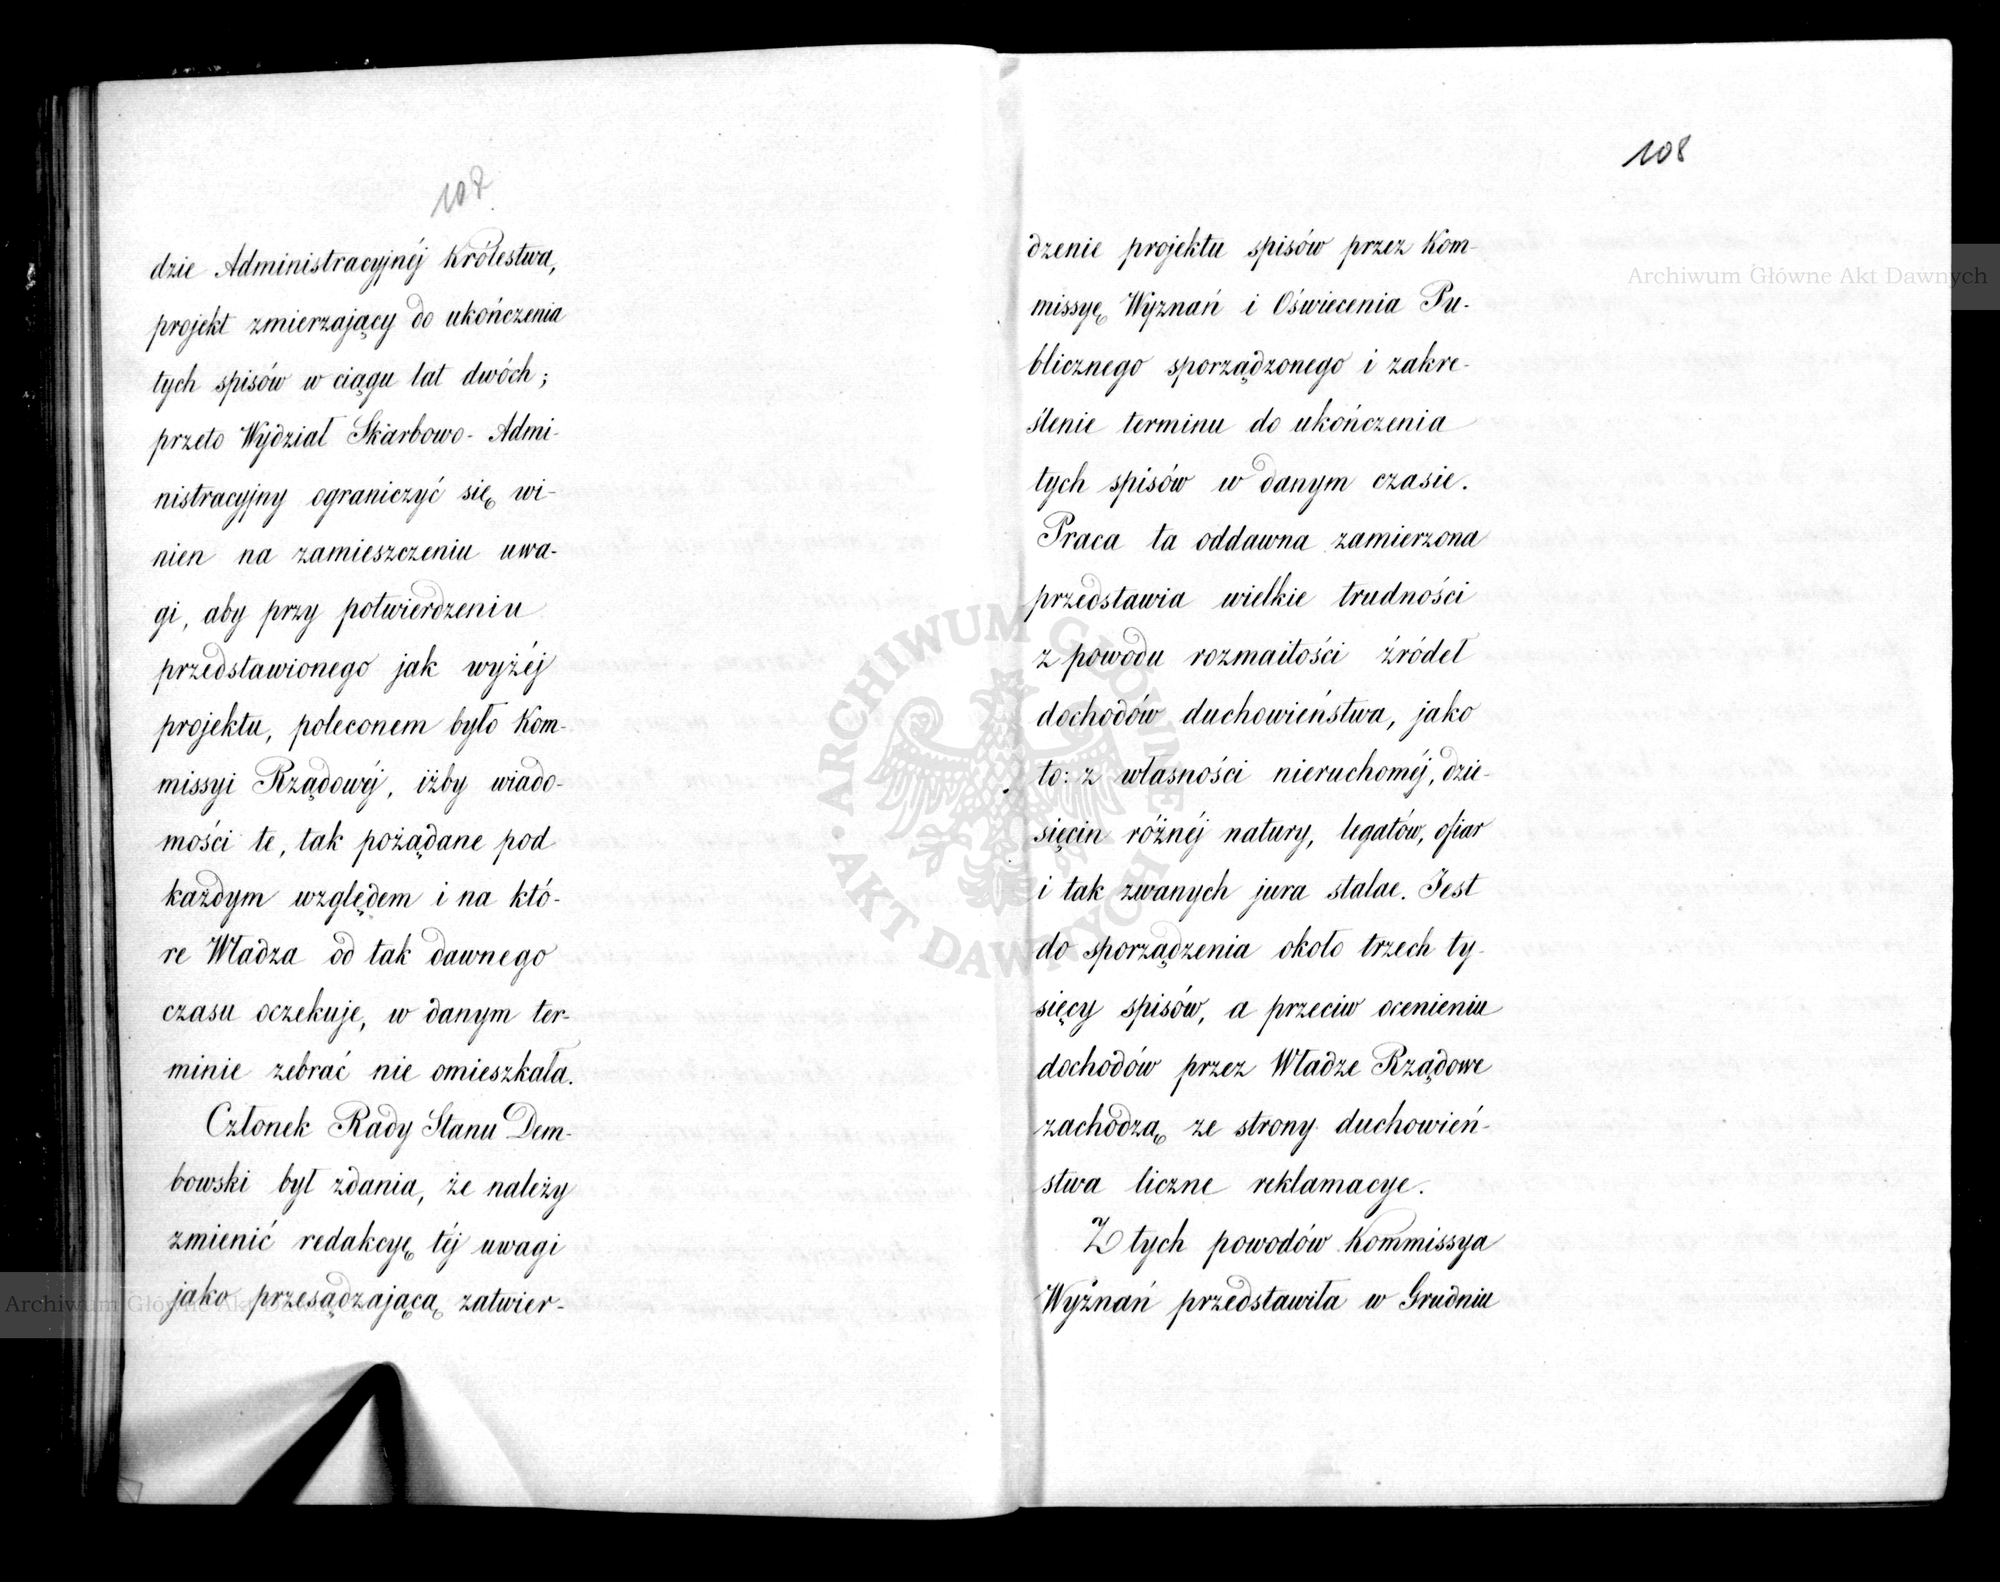 107.
dzie Administracyjnéj Królestwa,
projekt zmierzający do ukończenia
tych spisów w ciągu lat dwóch;
przeto Wydział Skarbowo-Admi-
nistracyjny ograniczyć się wi-
nien na zamieszczeniu uwa-
gi, aby przy potwierdzeniu
przedstawionego jak wyżéj
projektu, poleconem było Kom-
missyi Rządowéj, iżby wiado-
mości te, tak pożądane pod
każdym względem i na któ-
re Władza od tak dawnego
czasu oczekuje, w danym ter-
minie zebrać nie omieszkała.
Członek Rady Stanu Dem-
bowski był zdania, że należy
zmienić redakcyę téj uwagi
jako przesądzającą zatwier-
108
dzenie projektu spisów przez Kom-
missyę Wyznań i Oświecenia Pu-
blicznego sporządzonego i zakre-
ślenie terminu do ukończenia
tych spisów w danym czasie.
Praca ta oddawna zamierzona
przedstawia wielkie trudności
z powodu rozmaitości źródeł
dochodów duchowieństwa, jako
to: z własności nieruchoméj, dzie-
sięcin różnéj natury, legatów, ofiar
i tak zwanych jura stalae. Jest
do sporządzenia około trzech ty-
sięcy spisów, a przeciw ocenieniu
dochodów przez Władze Rządowe
zachodzą ze strony duchowień-
stwa liczne reklamacye.
Z tych powodów Kommissya
Wyznań przedstawiła w Grudniu
Archiwum Główne Akt Dawnych
ARCHIWUM GŁÓWNE
AKT DAWNYCH
Archiwum Główne Akt Dawnych